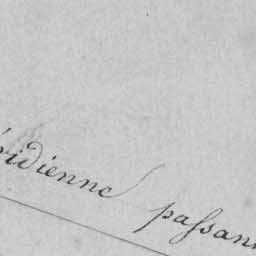 ridienne passan